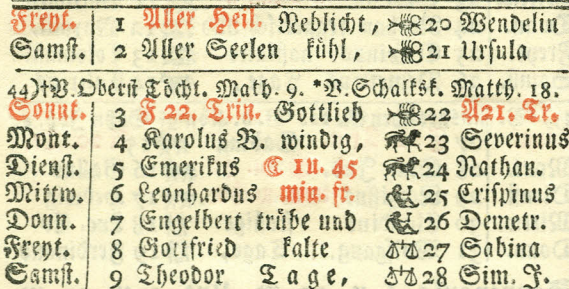 Freyt. 1 Aller Heil. Neblicht, 20 Wendelin
Samst. 2 Aller Seelen kühl, 21 Ursula
44)†V. Oberst Töcht. Math. 9. *V. Schalksk. Matth. 18.
Sonnt. 3 F 22. Trin. Gottlieb 22 A21. Tr.
Mont. 4 Karolus B. windig, 23 Severinus
Dienst. 5 Emerikus ☾ 1 u. 45 24 Nathan.
Mittw. 6 Leonhardus min. fr. 25 Crispinus
Donn. 7 Engelbert trübe und 26 Demetr.
Freyt. 8 Gottfried kalte 27 Sabina
Samst. 9 Theodor Tage, 28 Sim. J.